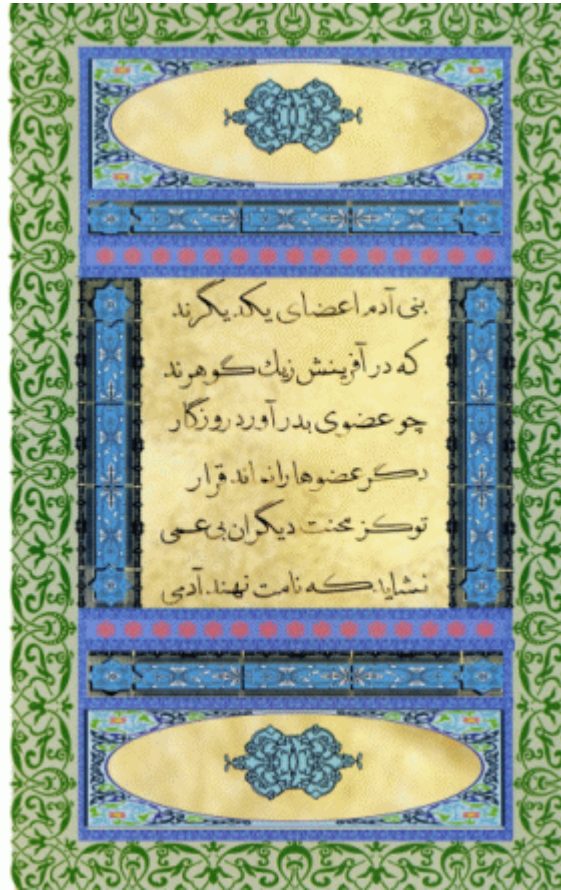 بنی آدم اعضای یکدیگرند
که در آفرینش زیك گوهرند
چو عضوی بدر آورد روزگار
دگر عضوها را نماند قرار
تو کز محنت دیگران بی غمی
نشاید که نامت نهند آدمی